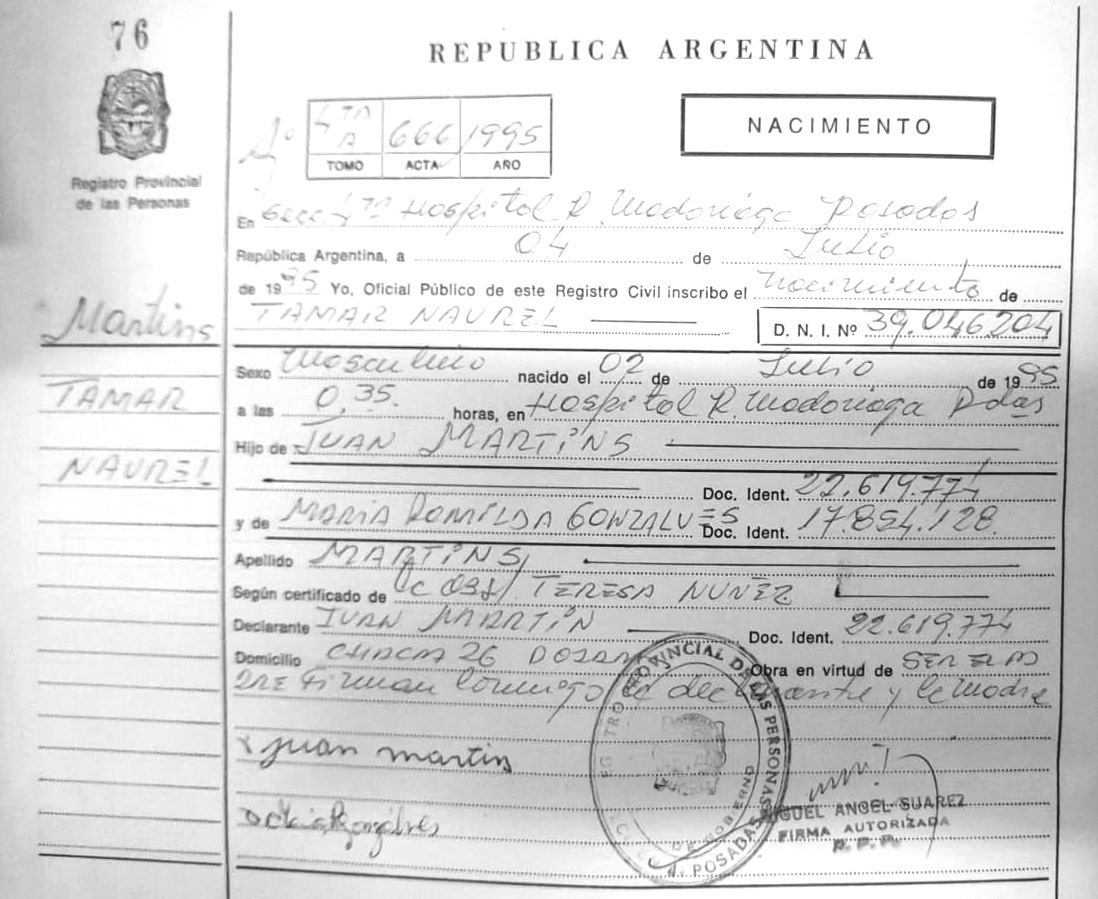 76
Registro Provincial
de las Personas
Martins
TAMAR
NAUREL
REPUBLICA ARGENTINA
NACIMIENTO
4TA A 666 1995
TOMO ACTA AÑO
En Secc 4ta Hospital R. Madariaga Posadas
República Argentina, a 04 de Julio
de 1995 Yo, Oficial Público de este Registro Civil inscribo el nacimiento de
TAMAR NAUREL D. N. I. Nº 39.046.204
Sexo Masculino nacido el 02 de Julio de 1995
a las 0,35. horas, en Hospital R. Madariaga Pdas
Hijo de JUAN MARTINS
Doc. Ident. 22.619.774
y de MARIA ROMILDA GONZALVES Doc. Ident. 17.854.128
Apellido MARTINS
Según certificado de TERESA NUÑEZ
Declarante JUAN MARTIN Doc. Ident. 22.619.774
Domicilio CHACRA 26 POSADAS Obra en virtud de SER EL PA
DRE Firman conmigo el declarante y la madre
x juan martin
MIGUEL ANGEL SUAREZ
FIRMA AUTORIZADA
R. P. P.
REGISTRO PROVINCIAL DE LAS PERSONAS
DE GOBIERNO
POSADAS